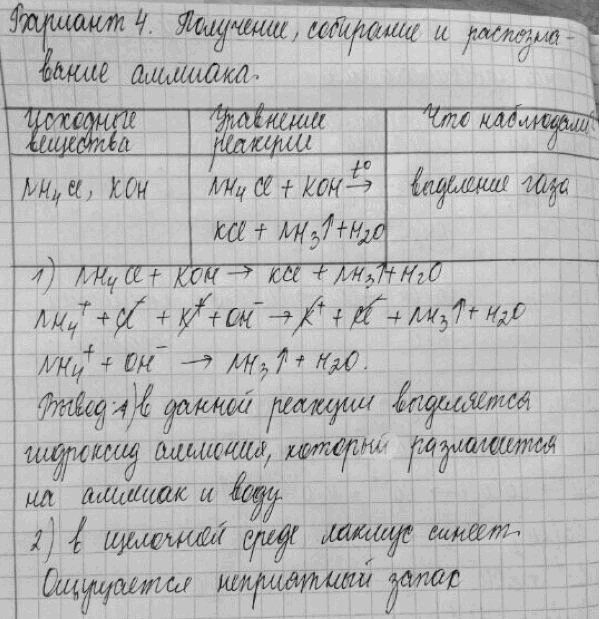 Вариант 4. Получение, собирание и распозна-
вание аммиака.
Исходные вещества
Уравнение реакции
Что наблюдали
NH₄Cl, KOH
NH₄Cl + KOH t° →
KCl + NH₃↑ + H₂O
выделение газа
1) NH₄Cl + KOH → KCl + NH₃↑ + H₂O
NH₄⁺ + Cl⁻ + K⁺ + OH⁻ → K⁺ + Cl⁻ + NH₃↑ + H₂O
NH₄⁺ + OH⁻ → NH₃↑ + H₂O.
Вывод: 1) в данной реакции выделяется
гидроксид аммония, который разлагается
на аммиак и воду.
2) в щелочной среде лакмус синеет.
Ощущается неприятный запах